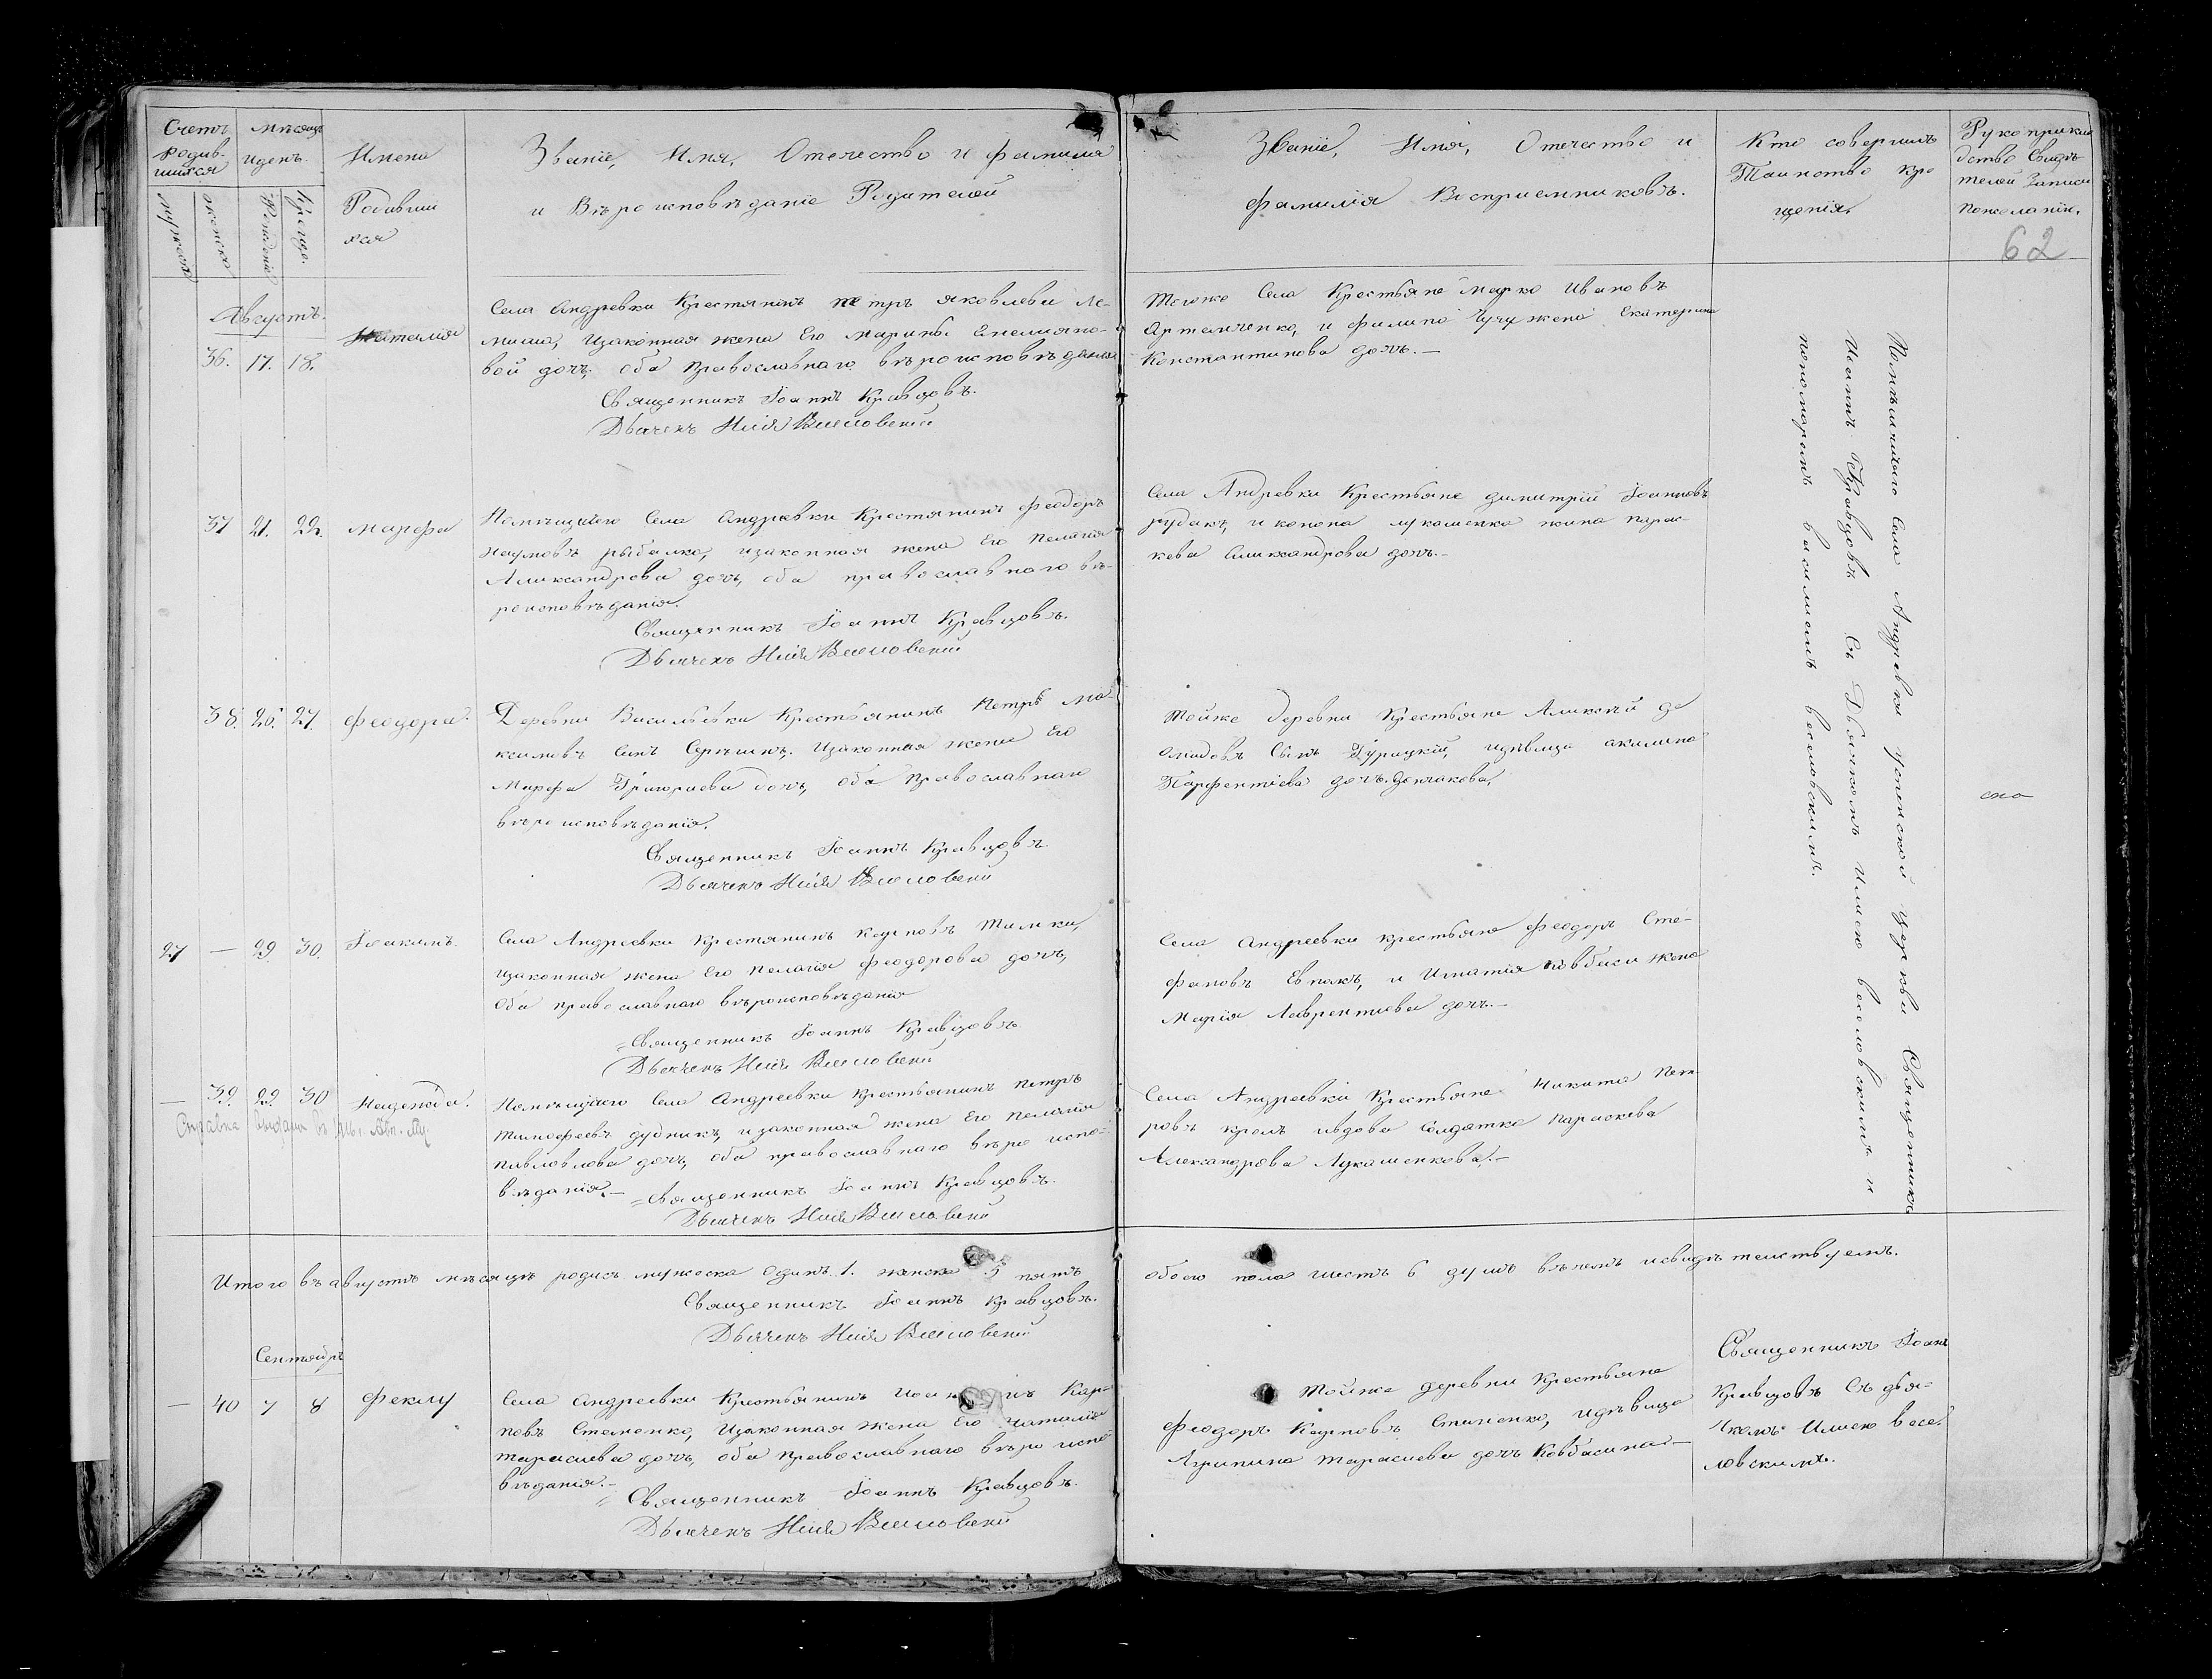 Счетъ родив-шихся
Мѣсяцъ и день.
Имена Родившихся
Званіе, Имя, Отечество и фамилія
и Вѣроисповѣданіе Родителей
Званіе, Имя, Отечество и
фамилія Восприемниковъ.
Кто совершилъ
Таинство кре
щенія.
Рукоприкла
дство Свидѣ
телей Записи
пожеланію.
62
мужеска
женска
Рожденія
Креще.
Августъ.
36. 17. 18.
Наталія
Села Андревки Крестянинъ петръ яковлевъ Ле-
миша, изаконная жена Его Марины Емелияно-
вой дочь, оба Православнаго вѣроисповѣданія
Священникъ Іоаннъ Кравцовъ.
Дьячекъ Илія Веселовскій
Тогоже Села Крестьяне марко Ивановъ
Артемченко, и филипа жена Екатерина
Константинова дочь.—
37 21. 22. марфа
Помѣщичьего Села Андревки Крестянинъ феодоръ
наумовъ рыбалко, изаконная жена Его Пелагія
Александрова дочь, оба православнаго вѣ-
роисповѣданія.
Священникъ Іоаннъ Кравцовъ.
Дьячекъ Илія Веселовскій
Села Андревки Крестьяне димитрій Іоанновъ
рудикъ, и конона лукашенка жина парас-
кева Александрова дочь.—
38. 26. 27. феодора.
Деревни Васильевки Крестьянинъ Петръ Ма-
ксимовъ Сынъ изаконная жена Его
Марфа Григориева дочь, оба Православнаго
вѣроисповѣданія.
Священникъ Іоаннъ Кравцовъ.
Дьячекъ Илія Веселовскій
Тойже деревни Крестьяне Аликсѣй де
мидовъ Сынъ идѣвица акилина
Парфентіева дочь.
27 — 29. 30. Іоакимъ.
Села Андреевки Крестянинъ карповъ
изаконная жена Его Пелагія феодорова дочь,
оба православнаго вѣроисповѣданія
Священникъ Іоаннъ Кравцовъ
Дьячекъ Илія Веселовскій
Села Андреевки крестьяне феодоръ Сте-
фановъ и Игнатія ковбаси жена
Марія Лаврентиева дочь.—
— 39. 29. 30 Надежда.
Справка выдана
Помѣщичьего Села Андреевки Крестьянинъ петръ
тимофеевъ дудникъ, изаконная жена Его Пелагія
павловлова дочь, оба православнаго вѣро испо-
вѣданія.— Священникъ Іоаннъ Кравцовъ.
Дьячекъ Илія Веселовскій
Села Андреевки Крестьяне Никита Пет-
ровъ ивдова Солдатка параскева
Александрова Лукашенкова.—
Помѣщичьяго Села Андревки успенской церкви Священникъ
Иоаннъ Кравцовъ Съ Дьячкомъ Илиею веселовскимъ и
пономаремъ василиемъ веселовскимъ.
Итого въ августѣ мѣсяцѣ родись мужеска Одинъ. 1. женска 5 пять
обоего пола шесть 6 душъ въчемъ исвидѣтельствуемъ.
Священникъ Іоаннъ Кравцовъ.
Дьячекъ Илія Веселовскій
Сентябрь
— 40 7 8 феклу
Села Андреевки Крестьянинъ Кар-
повъ Степаненко, изаконная жена Его наталія
тарасиева дочь, оба Православнаго вѣро испо-
вѣданія.—
Священникъ Іоаннъ Кравцовъ.
Дьячекъ Илія Веселовскій
Тойже деревни Крестьяне
феодоръ Карповъ идѣвица
Агрипина тарасиева дочь Ковбасина—
Священникъ Іоанъ
Кравцовъ Съ дья-
чкомъ Илиею весе-
ловскимъ.